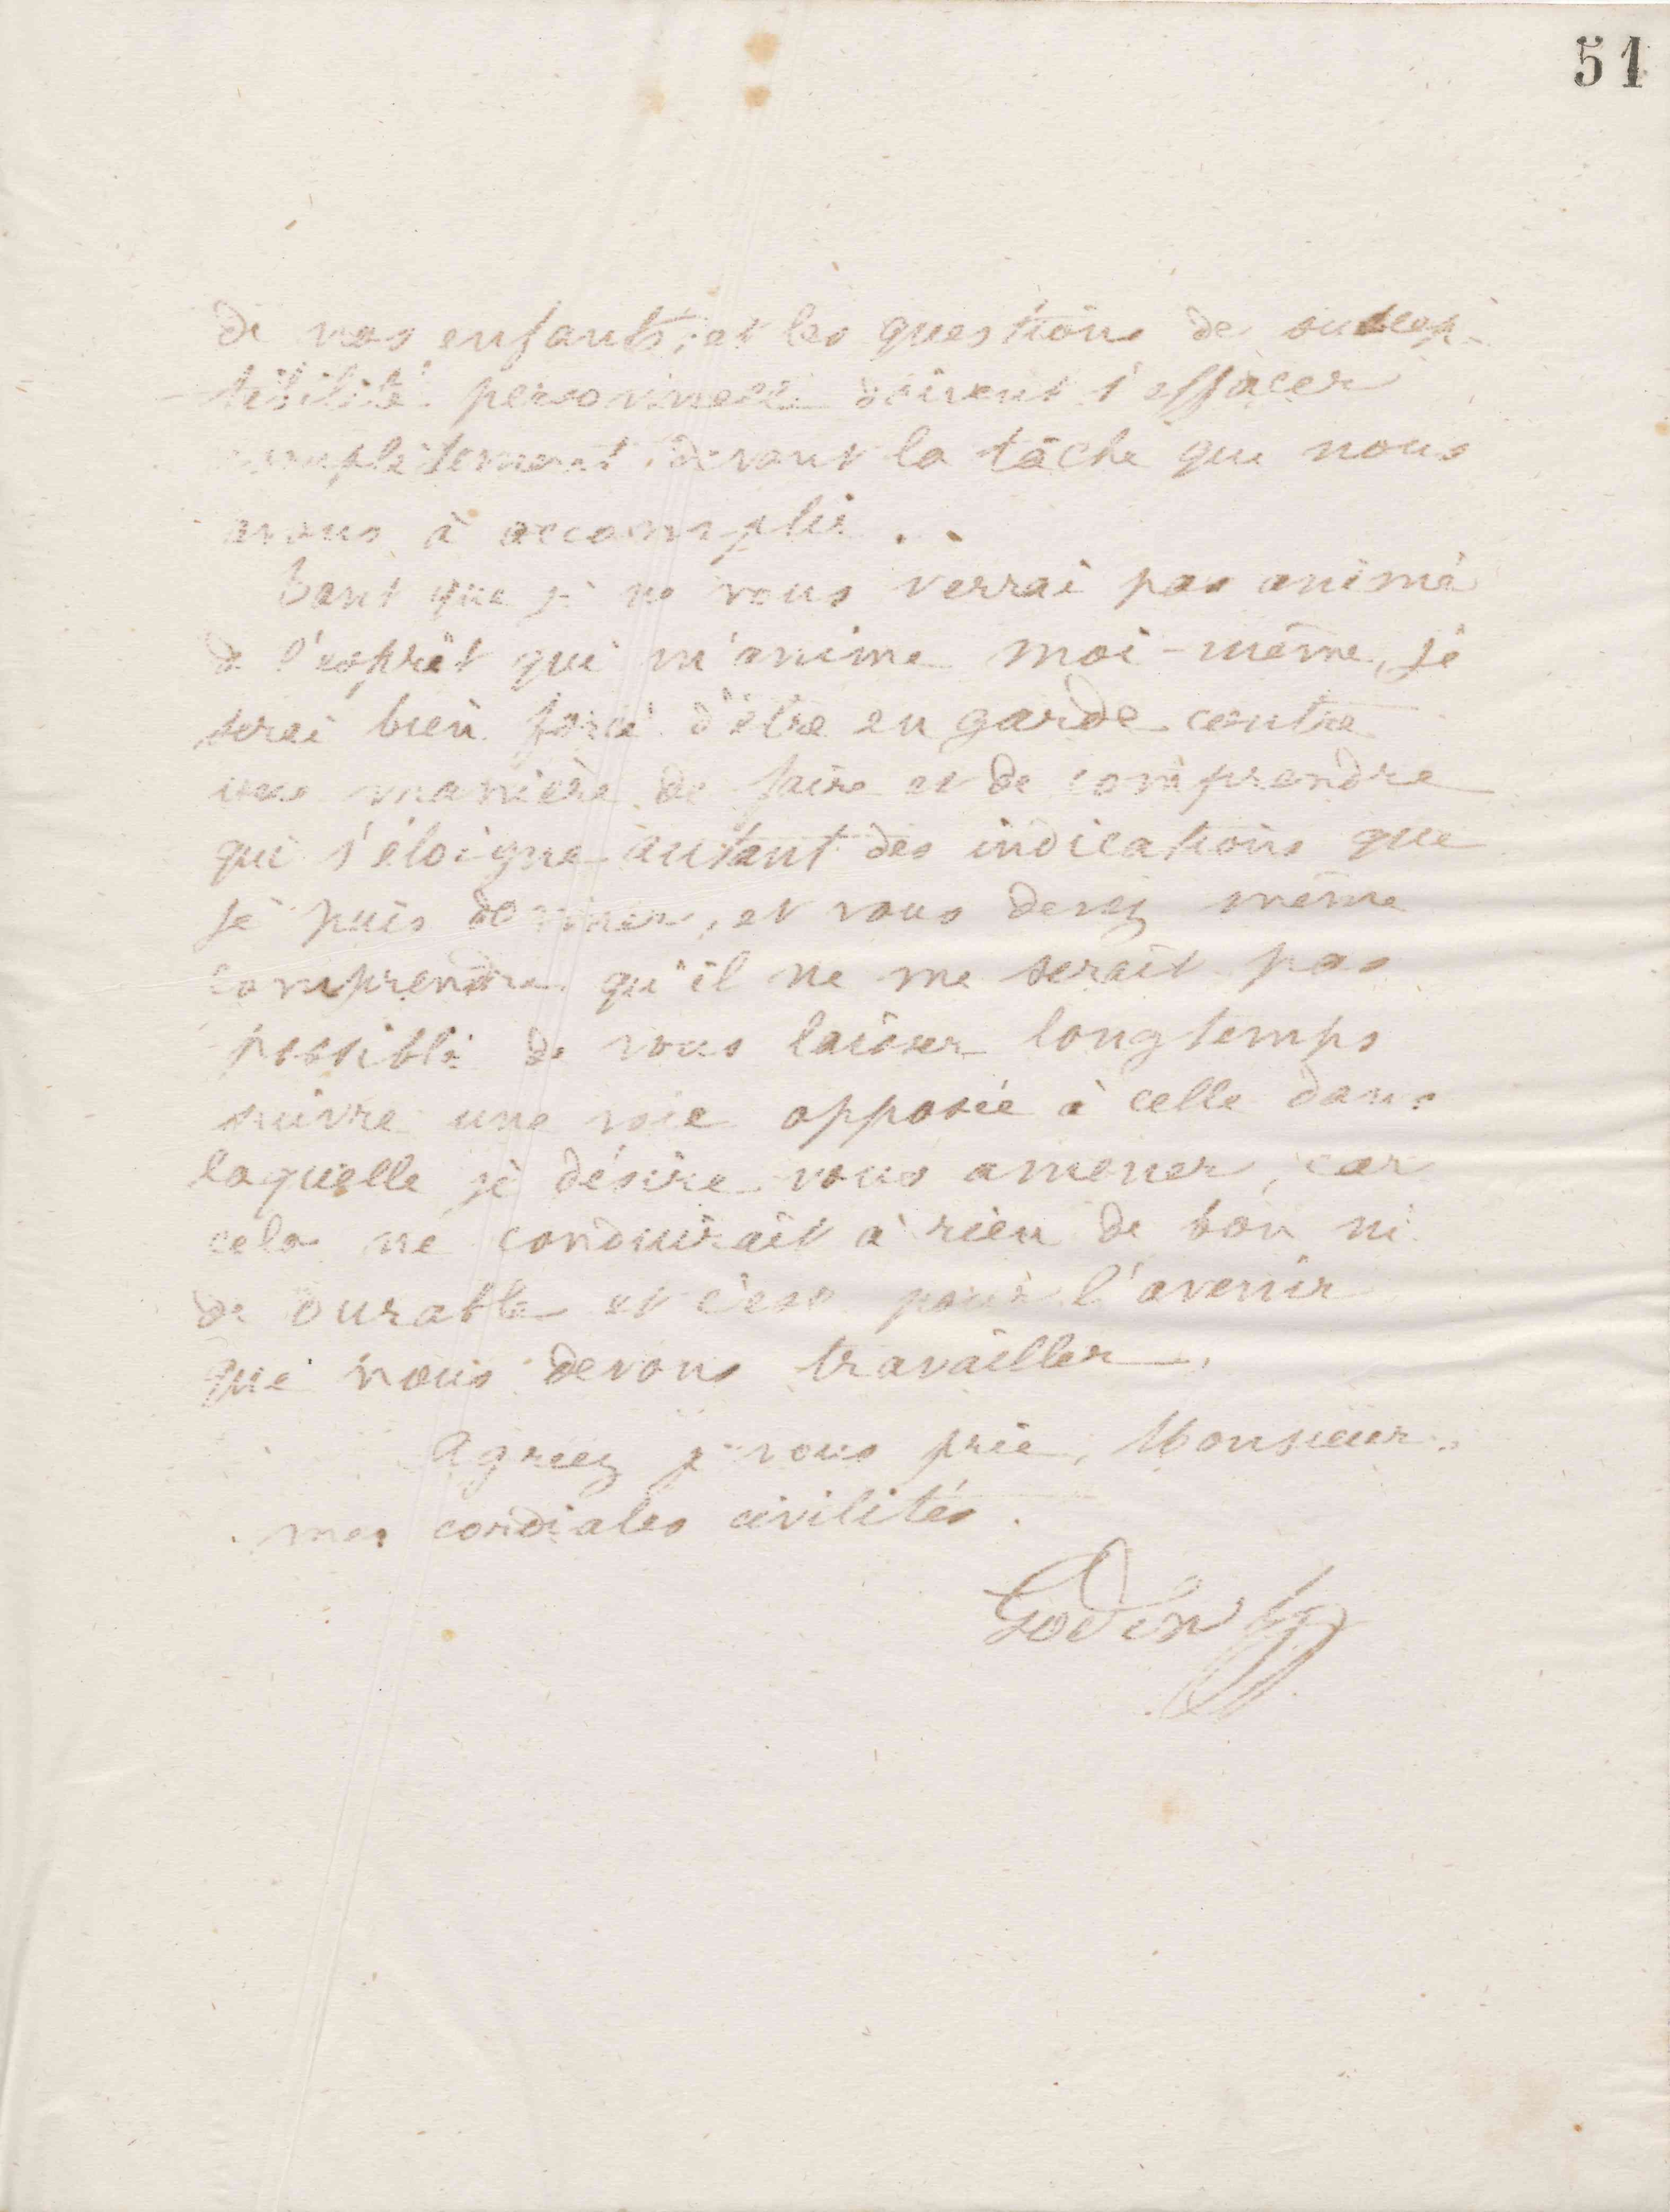 51
de nos enfants, et les questions de suscep-
tibilité personnelle doivent s'effacer
complètement devant la tâche que nous
avons à accomplir.
Tant que je ne vous verrai pas animé
de l'esprit qui m'anime moi-même, je
serai bien forcé d'être en garde contre
une manière de faire et de comprendre
qui s'éloigne autant des indications que
je puis donner, et vous devez même
comprendre qu'il ne me serait pas
possible de vous laisser longtemps
suivre une voie opposée à celle dans
laquelle je désire vous amener, car
cela ne conduirait à rien de bon ni
de durable et c'est pour l'avenir
que nous devons travailler.
Agréez je vous prie, Monsieur,
mes cordiales civilités.
Godin